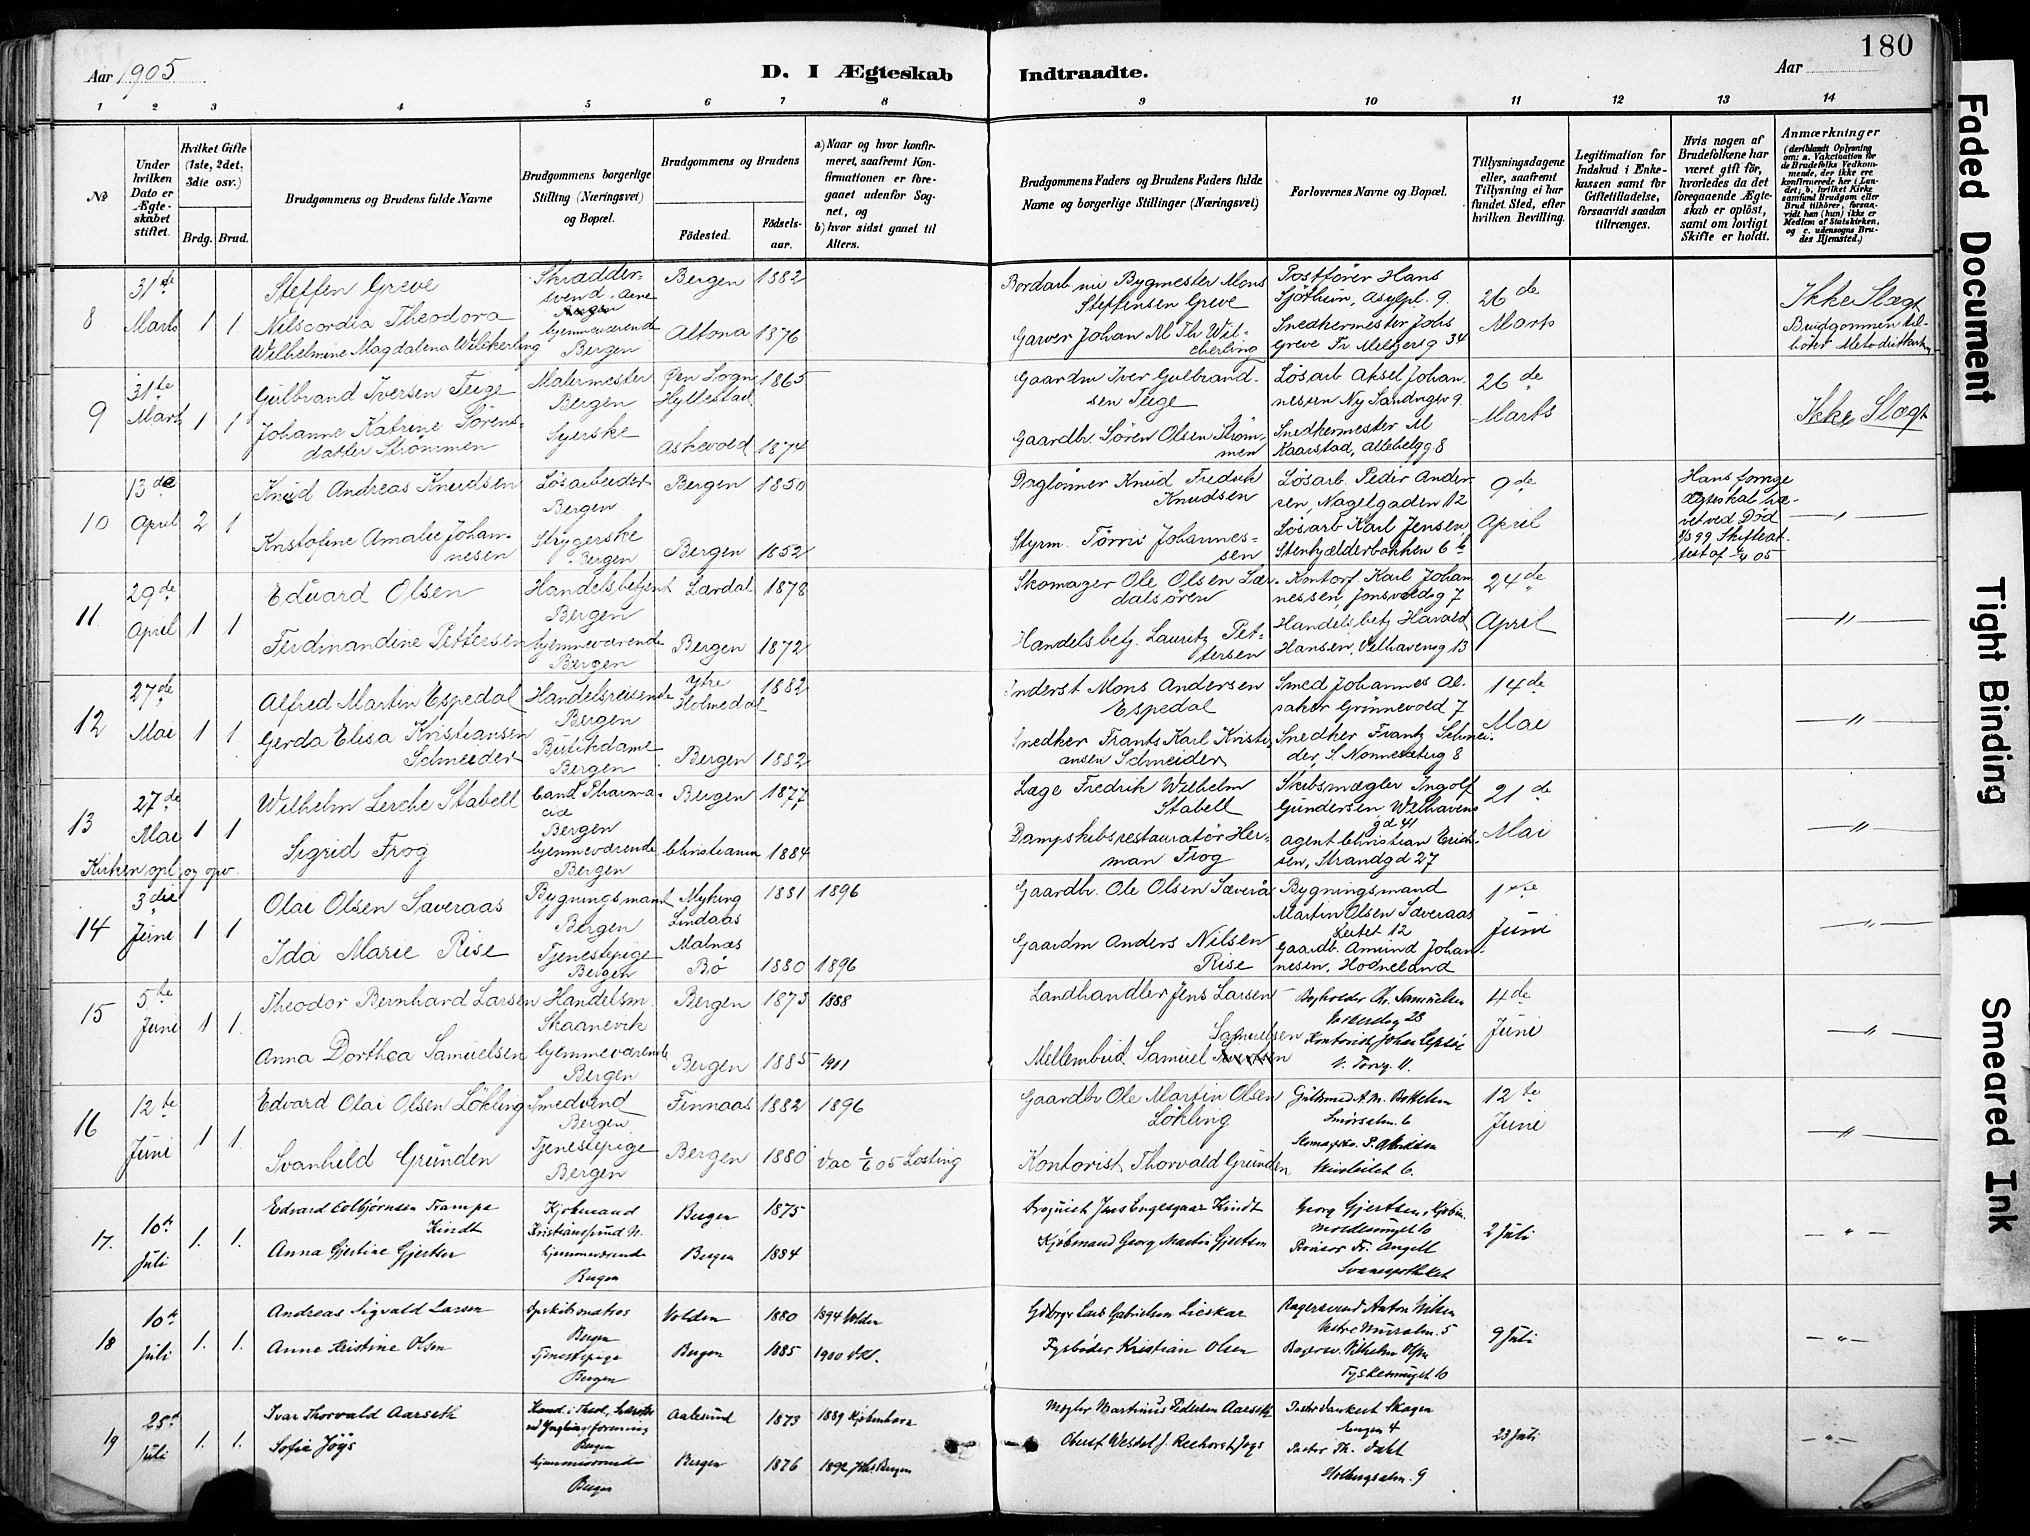 180
Aar 1905
D. I Ægteskab Indtraadte.
Aar
1 2 3 4 5 6 7 8 9 10 11 12 13 14
№
Under hvilken Dato er Ægteskabet stiftet.
Hvilket Gifte (1ste, 2det, 3die osv.)
Brdg. Brud.
Brudgommens og Brudens fulde Navne
Brudgommens borgerlige Stilling (Næringsvei) og Bopæl.
Brudgommens og Brudens
Fødested.
Fødselsaar.
a) Naar og hvor konfirmeret, saafremt Konfirmationen er foregaaet udenfor Sognet, og
b) hvor sidst gaaet til Alters.
Brudgommens Faders og Brudens Faders fulde Navne og borgerlige Stillinger (Næringsvei)
Forlovernes Navne og Bopæl.
Tillysningsdagene eller, saafremt Tillysning ei har fundet Sted, efter hvilken Bevilling.
Legitimation for Indskud i Enkekassen samt for Giftetilladelse, forsaavidt saadan tiltrænges.
Hvis nogen af Brudefolkene har været gift før, hvorledes da det foregaaende Ægteskab er opløst, samt om lovligt Skifte er holdt.
Anmærkninger (deriblandt Oplysning om: a. Vakcination for de Brudefolks Vedkommende, der ikke ere konfirmerede her i Landet; b. hvilket Kirkesamfund Brudgom eller Brud tilhører, forsaavidt han (hun) ikke er Medlem af Statskirken, og c. udensogns Brudes Hjemsted.)
8 31te Marts 1 1.
Steffen Greve
Skræddersvend. Arne
Bergen 1882
Bordarb. nu Bygmester Mons Steffensen Greve
Postfører Hans Sjøthun, Asylpl. 9.
26de Marts
Ikke Slægt
Nilscordia Theodora Wilhelmine Magdalena Wilckerling
hjemmeværende Bergen
Altona 1876
Garver Johan M Th Wilckerling
Snedkermester Johs Greve Fr Meltzersg 34
Brudgommen tilhører Metodistkirken
9 31te Marts 1 1
Gulbrand Iversen Teige
Malermester Bergen
Hyllestad 1865
Gaardm Iver Gulbrandsen Teige
Løsarb Aksel Johannesen Ny Sandvigsv 9.
26de Marts
Ikke Slægt
Johanne Katrine Sørensdatter Strømmen
Syerske
Askevold 1874
Gaardbr. Søren Olsen Strømmen
Snedkermester M Kaarstad, Allehelgg 8
10 13de April 2 1
Knud Andreas Knudsen
Løsarbeider Bergen
Bergen 1850
Daglønner Knud Fredrik Knudsen
Løsarb. Peder Andersen, Nagelgaden 12
9de April
Hans forrige Ægteskab hævet ved Død 2/3 99 Skifteattest af 05
— „ —
Kristofine Amalie Johannesen
Strygerske Bergen
Bergen 1852
Styrm. Tørris Johannessen
Løsarb Karl Jensen Stenkjælderbakken 6 b
11 29de April 1 1
Eduard Olsen
Handelsbetjent Bergen
Lærdal 1878
Skomager Ole Olsen Lærdalsøren
Kontorf. Karl Johannessen, Jonsvoldsg 7
24de April
— „ —
Ferdinandine Pettersen
hjemmeværende Bergen
Bergen 1872
Handelsbetj. Lauritz Pettersen
Handelsbetj Harald Hansen, Velhavensg 13
12 27de Mai 1 1.
Alfred Martin Espedal
Handelsreisende Bergen
Ytre Holmedal 1882
Inderst Mons Andersen Espedal
Smed Johannes Alsaker Grønnevold 7
14de Mai
— „ —
Gerda Elisa Kristiansen Schneider
Butikdame Bergen
Bergen 1882
Snedker Frants Karl Kristiansen Schneider
Snedker Frantz Schneider, S. Nonnesæterg 8
13 27de Mai 1 1
Wilhelm Lerche Stabell
Cand. Pharmacie Bergen
Bergen 1877
Læge Fredrik Wilhelm Stabell
Skibsmægler Ingolf Gundersen, Welhavensgd 41
21de Mai
— „ —
Sigrid Frog
hjemmeværende Bergen
Christiania 1884
Dampskibsrestauratør Herman Frog
Agent Christian Erichsen, Strandgd 27
Kirken opl. og opv.
14 3die Juni 1 1
Olai Olsen Sæveraas
Bygningsmand Bergen
Myking Lindaas 1881 1896
Gaardbr. Ole Olsen Sæveraa
Bygningsmand Martin Olsen Sæveraas Leitet 12
1ste Juni
— „ —
Ida Marie Rise
Tjenestepige Bergen
Malnæs Bø 1880 1896
Gaardm Anders Nilsen Rise
Gaardb. Amund Johannesen, Hodneland
15 5te Juni 1 1.
Theodor Bernhard Larsen
Handelsm. Skaanevik
Bergen 1873 1888
Landhandler Jens Larsen
Bogholder Chr. Samuelsen 28
4de Juni
— „ —
Anna Dorthea Samuelsen
hjemmeværende Bergen
Bergen 1885 1901
Mellembud Samuel Samuelsen
Kontorist Johan Lepsøe V. Torvg. 11.
16 12te Juni 1 1.
Edvard Olai Olsen Løkling
Smedsvend Bergen
Finnaas 1882 1896
Gaardbr Ole Martin Olsen Løkling
Guldsmed A. M. Smørsalm. 6
12te Juni
— „ —
Svanhild Grunden
Tjenestepige Bergen
Bergen 1880 Vac 05 Losting
Kontorist Thorvald Grunden
17. 10de Juli 1. 1.
Edvard Colbjørnsen Trampe Kindt
Kjøbmand Kristianssund N.
Bergen 1875
Droguist Jens Lngesgaar Kindt
Georg Gjertsen, Kjøbm.
2 Juli
— „ —
Anna Gjertine Gjertsen
hjemmeværende Bergen
Bergen 1884
Kjøbmand Georg Martin Gjertsen
Provisor Fr. Angell Svaneapotheket
18 10de Juli 1. 1.
Andreas Sigvald Larsen
Bergen
Volden 1880 1894 Volden
Gdbrgr Lars Gabrielsen Lieskar
Bagersvend Anton Nilsen Vestre Muralm. 5
9 Juli
— „ —
Anne Kristine Olsen
Tjenestepige Bergen
Bergen 1885 1900
Fyrbøder Kristian Olsen
Bagersv. Vilhelm Olsen Tyskesmuget 10
19 25de Juli 1. 1.
Ivar Thorvald Aarseth
Kand. i Theol., Sekretær ved Ynglingeforening Bergen
Aalesund 1873 1889 Kjøbenhavn
Mægler Martinus Pedersen Aarseth
Pastor Dankert Skagen Engen 4
23 Juli
— „ —
Sofie Jøys
hjemmeværende Bergen
Bergen 1876 1892 Bergen
Pastor Th. Dahl Holbergsalm. 9
Faded Document
Tight Binding
Smeared Ink